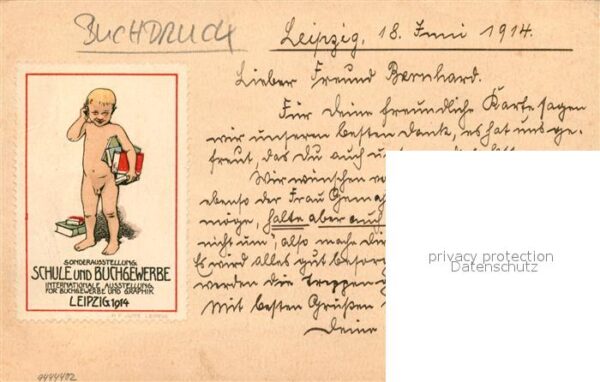 BUCHDRUCK
Leipzig, 18. Juni 1914.
Lieber Freund Bernhard.
Für Deine freundliche Karte sagen
wir unseren besten Dank, es hat uns ge-
freut, das Du auch
Wir wünschen
ebenso der Frau
möge, halte aber auch
nicht um", also mache
Es wird alles gut
werden die Treppen
Mit besten Grüßen
Deine
SONDERAUSSTELLUNG
SCHULE UND BUCHGEWERBE
INTERNATIONALE AUSSTELLUNG
FÜR BUCHGEWERBE UND GRAPHIK
LEIPZIG 1914
privacy protection
Datenschutz
9444402